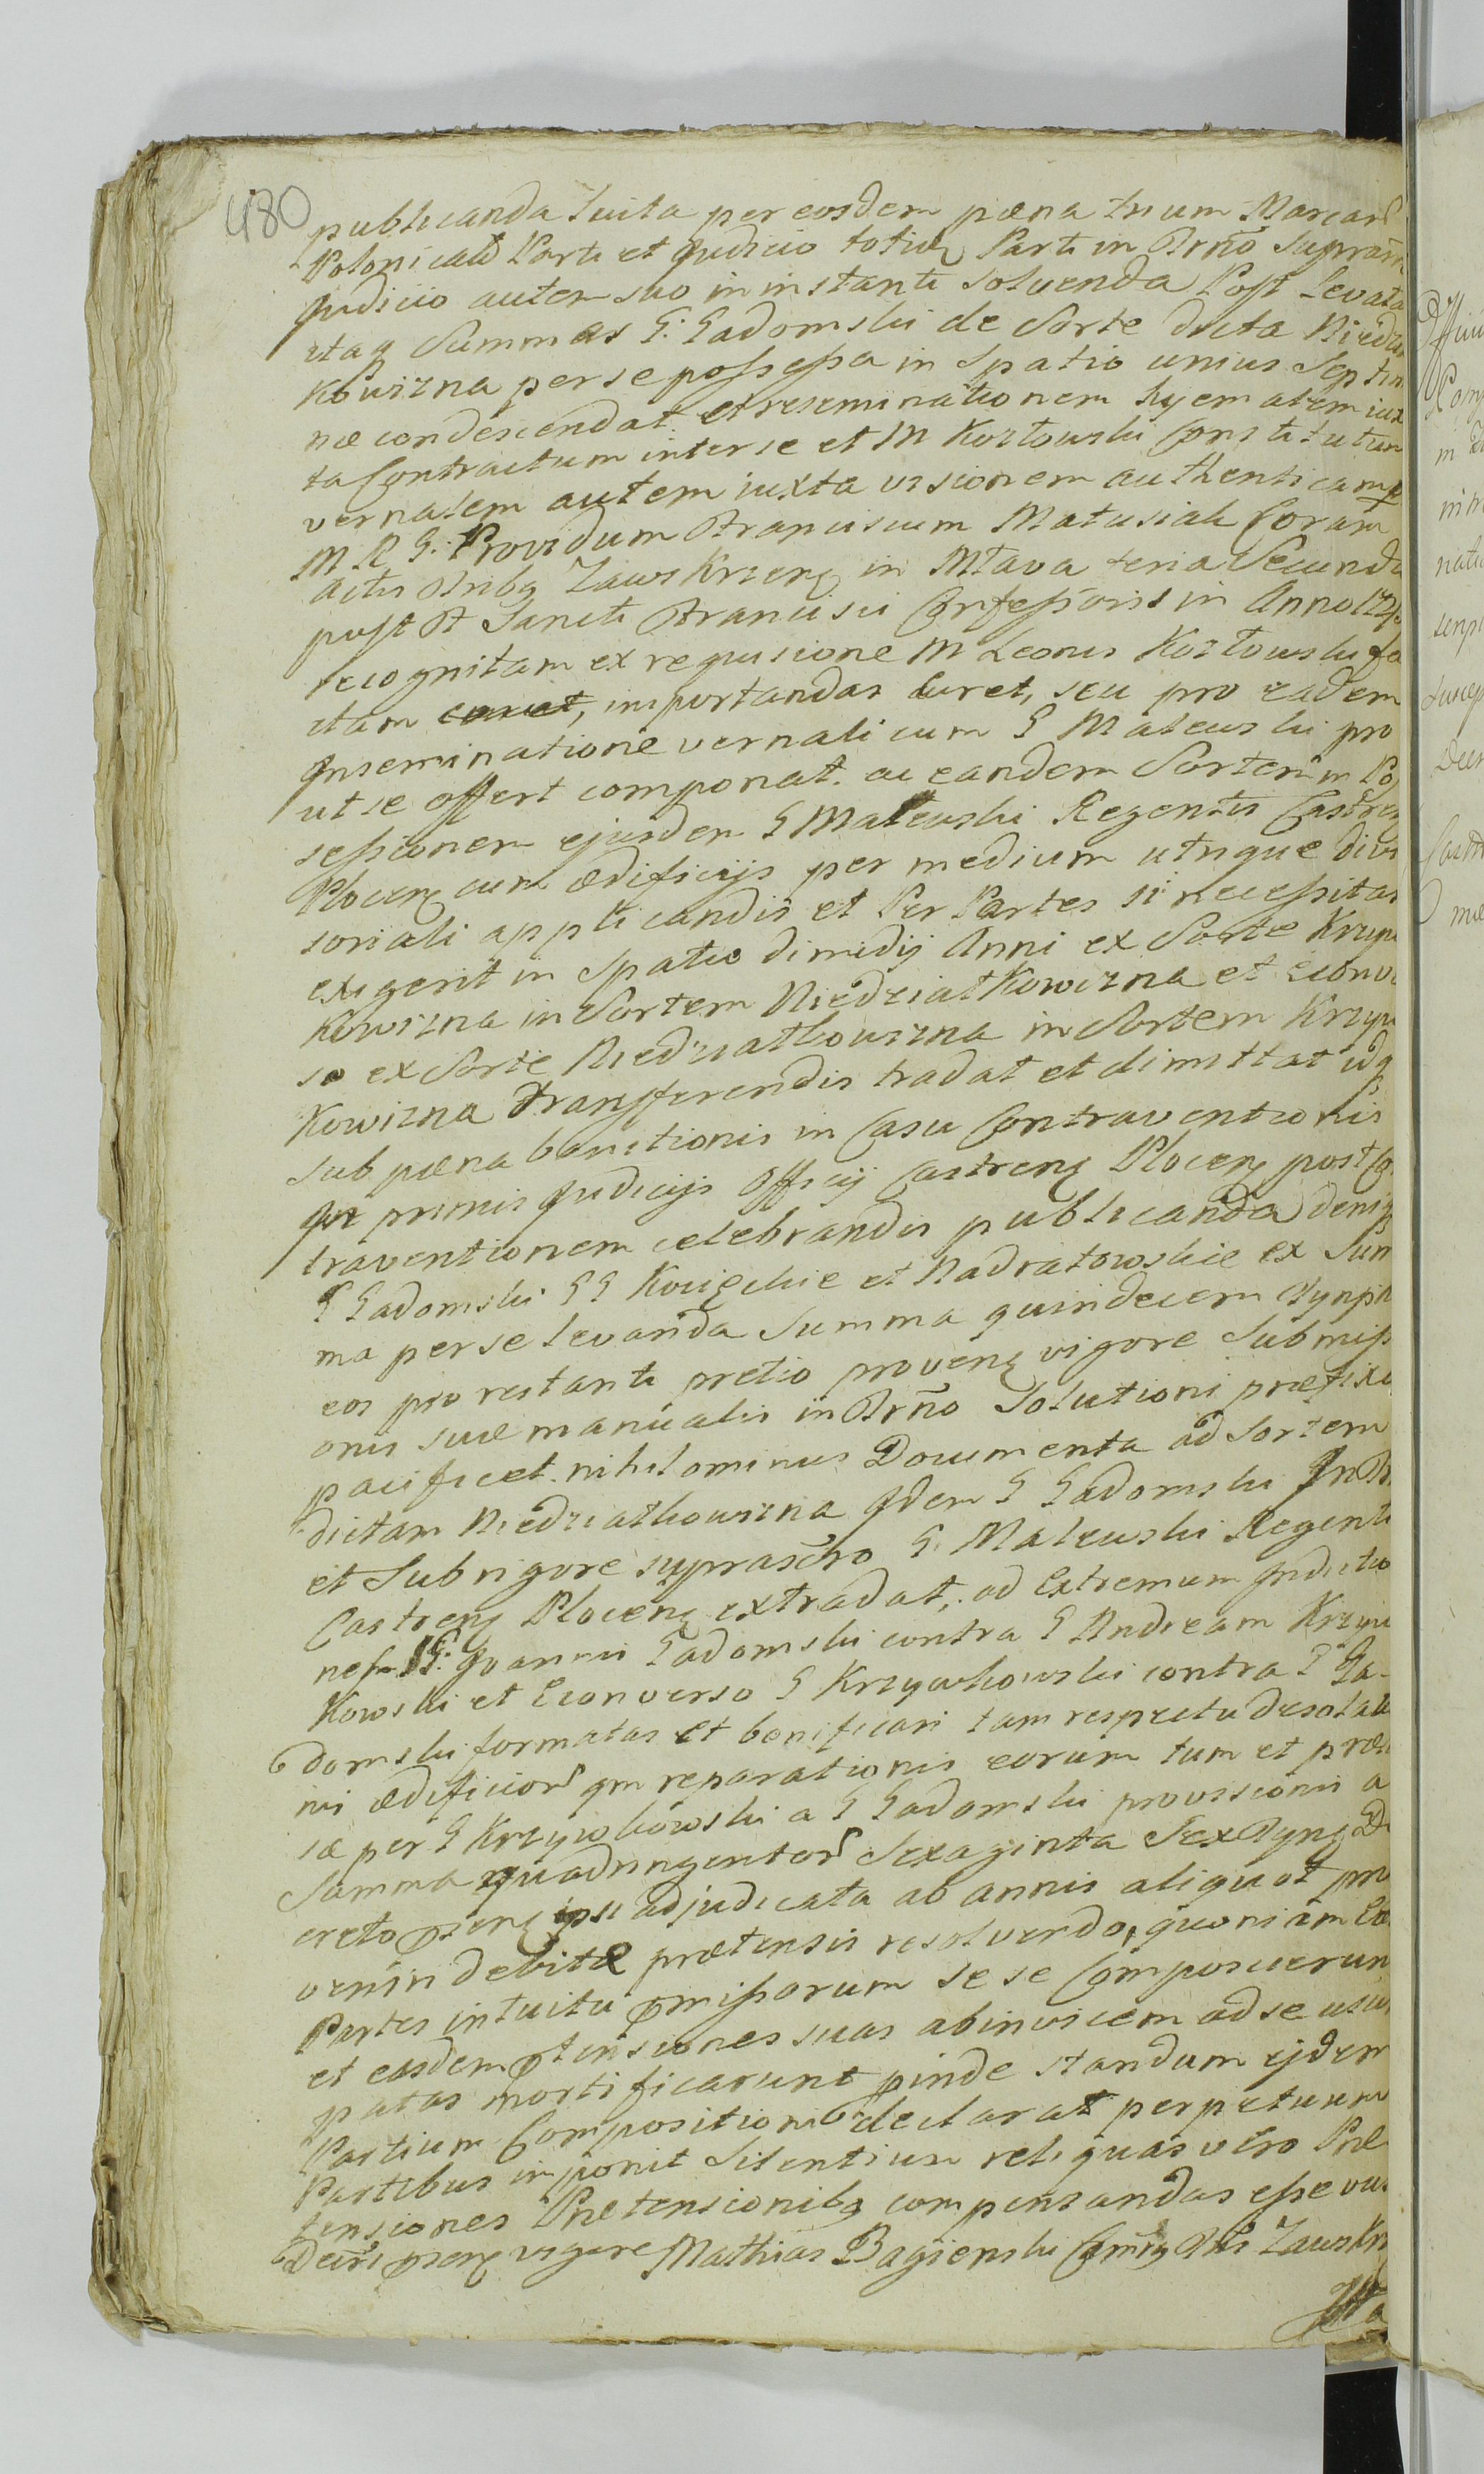 480
publicanda luita per eosdem pœna trium Marcar
Polonicaliũ Parti et Judicio totiq Parti in Trño supram
Judicio autem suo in instanti solvenda Post Levata
itaq Summas G: Gadomski de Sorte dicta Niedzia
Kowizna per se possessa in Spatio unius Septim
næ condescendat. et reseminationem hyemalem iux
ta Contractum inter se et M Kozłowski Constitutum
vernalem autem iuxta visionem authenticam p
M R G: Providum Franciscum Matusiak Coram
actis Tribq Zawskrzenę in Mława feria Secunda
post F Sancti Francisci Confessoris in Anno
recognitam ex requisione M Leonis Kozłowski fa
ctam importandas Curet, seu pro eadem
Inseminatione vernali cum G Malewski pro
ut se offert componat. ac eandem Sortem in Pos
sessionem ejusdem G Malewski Regentis Castren
Plocenę cum ædificijs per medium utrique divi
soriali applicandis et Per Partes si necessitas
exigerit in Spatio dimidij Anni ex Sorte Krzyw
Kowizna in Sortem Niedziałkowizna et Econve
so ex Sorte Niedziałkowizna in Sortem Krzyw
Kowizna Transferendis tradat et dimittat idq
sub pœna banitionis in Casu Contraventionis
In primis Judicijs Officij Castrenę Plocenę post Co
traventionem celebrandis publicanda denig
G Gadomski GG Kocięckie et Nadratowskie ex Sum
ma per se levanda Summa quindecem Tynph
eos pro restanti pretio provenę vigore Submissi
onis suæ manualis in Trño Solutioni præfixo
pacificet. nihilominus Documenta ad Sortem
dictam Niedziałkowizna Idem G Gadomski In Tr
et Sub rigore suprascro G. Malewski Regenti
Castrenę Plocenę extradat; ad Extremum Inductio
nes G: Joannis Gadomski contra G Andream Krzyw
Kowski et Econverso G Krzywkowski contra G Ga-
domski formatas et bonificari tam respectu desolati
nis ædificior qm reparationis eorum tum et præ
sæ per G Krzywkowski a G Gadomski provisionis a
Summa quadringentor Sexaginta Sex Tynę De
creto psenę ipsi adjudicata ab annis aliquot pro
venin debitæ prætensis resolvendo, quoniam Eæ
Partes intuitu pmissorum se se Composuerun
et easdem ptensiones suas abinvicem ad se usur
patas mortificarunt pinde standum ejdem
Partium Compositioni declarat perpetuum
Partibus imponit Silentium reliquas vero Præ
tensiones Prætensionibq compensandas esse vult
Decri psenę vigore Mathias Bagieński Zawskrz